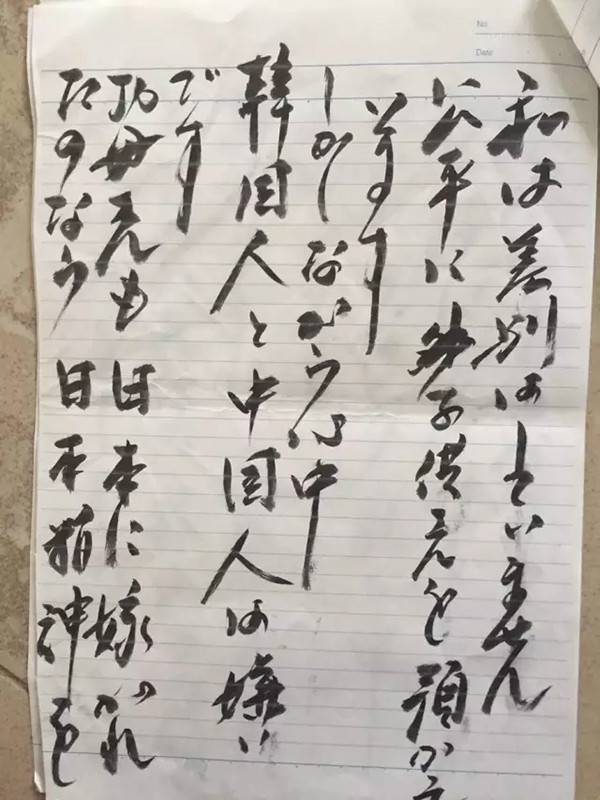 No.
Date
私は差別はしていません
公平にお子供さんを預かっ
います
しかしながら心中
韓国人と中国人は嫌い
です
お母さんも日本に嫁がれ
たのなら日本精神を